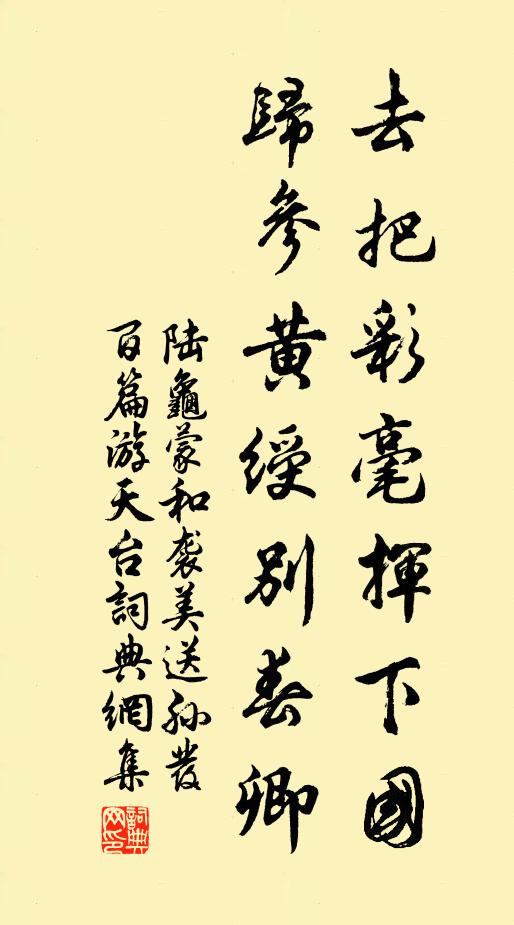 去把彩毫揮下國
歸參黄綬別春卿
陸龜蒙和袭美送孙發
百篇游天台詞典網集
詞典
网印